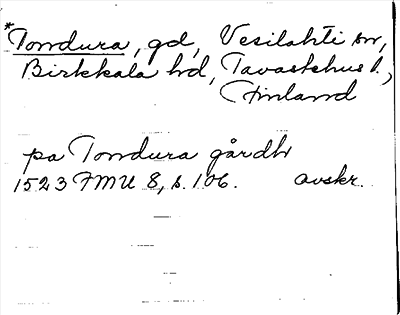 *Tondura, gd, Vesilahti sn,
Birkkala hd, Tavastehus l.,
Finland
pa Tondura gårdh
1523 FMU 8, s. 106. avskr.